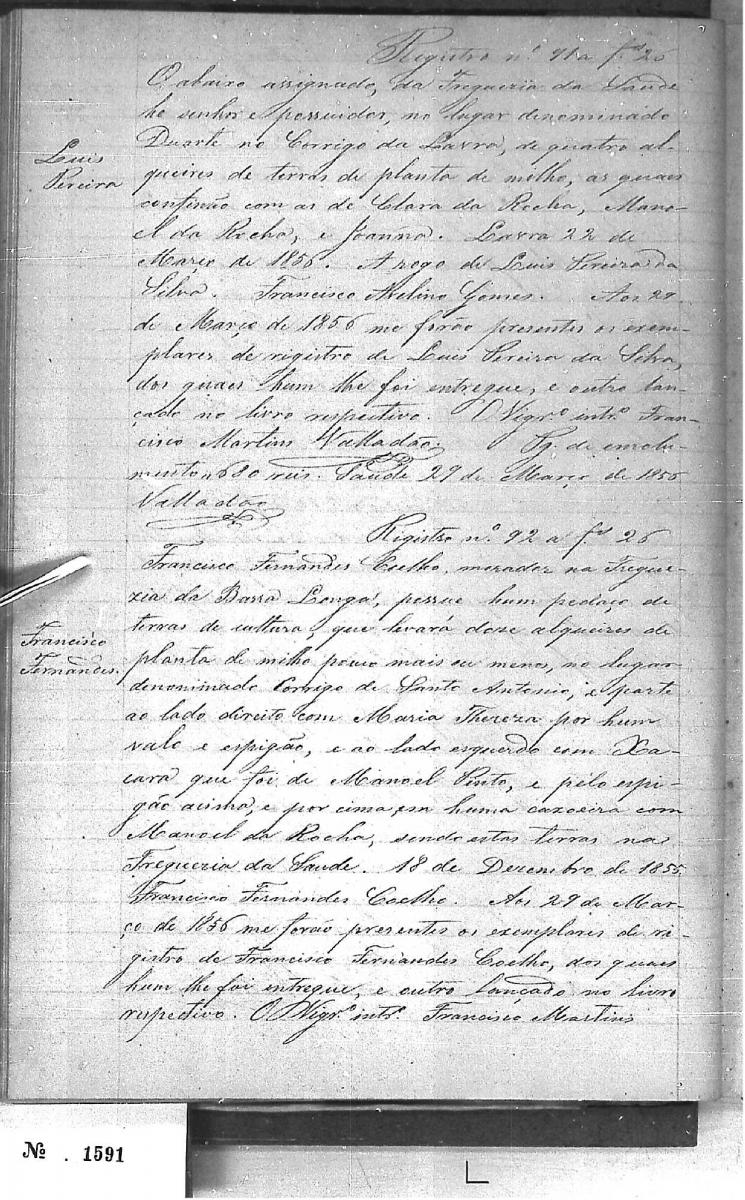 Registro nº 91 a f.s 26
O abaixo assignado, da Freguezia da Saude
he senhor e possuidor, no lugar denominado
Duarte no Corrigo da Lavra, de quatro al-
queires de terras de planta de milho, as quaes
confinão com as de Clara da Rocha, Mano-
el da Rocha, e Joanna. Lavra 22 de
Março de 1856. A rogo de Luis Pereira da
Silva. Francisco Avelino Gomes. Aos 29
de Março de 1856 me forão presentes os exem-
plares de registro de Luis Pereira da Silva,
dos quaes hum lhe foi entregue, e outro lan-
çado no livro respectivo. O Vigrº intrº Fran-
cisco Martins Valladão. Pg. de emolu-
mento 680 reis. Saude 29 de Março de 1856
Valladão
Luis
Pereira
Registro nº 92 a f.s 26
Francisco Fernandes Coelho, morador na Fregue-
zia da Barra Longa, possue hum pedaço de
terras de cultura, que levará doze alqueires de
planta de milho pouco mais ou menos, no lugar
denominado Corrigo de Santo Antonio, e parte
ao lado direito com Maria Thereza por hum
valo e espigão, e ao lado esquerdo com Xa-
cara que foi de Manoel Pinto, e pelo espi-
gão acima, e por cima em huma caxoeira com
Manoel da Rocha, sendo estas terras na
Freguezia da Saude. 18 de Dezembro de 1855
Francisco Fernandes Coelho. Aos 29 de Mar-
ço de 1856 me forão presentes os exemplares de re-
gistro de Francisco Fernandes Coelho, dos quaes
hum lhe foi entregue, e outro lancado no livro
respectivo. O Vigrº intrº Francisco Martins
Francisco
Fernandes.
№ . 1591